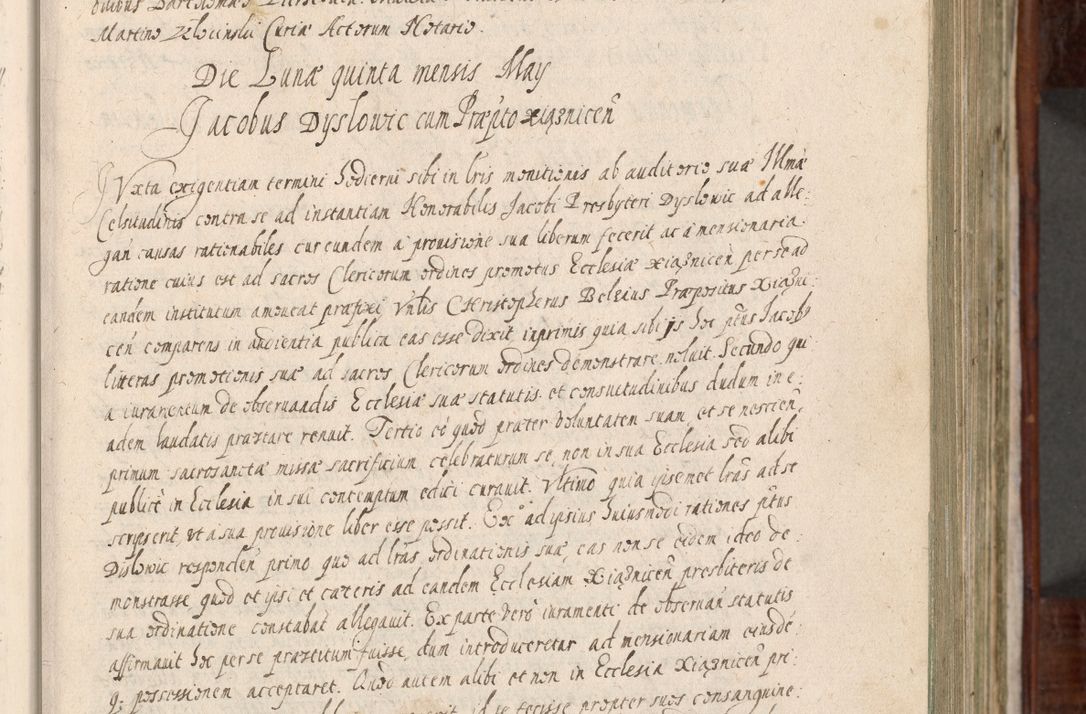 Martino Zlocinslii Curiæ Actorum Notario.
Die Lunæ quinta mensis May
Jacobus Dyslowic cum Præpto Xiąznicen̄
Iuxta exigentiam termini hodierni sibi in lris monitionis ab auditorio suæ Illmæ
Celsitudinis contra se ad instantiam Honorabilis Jacobi Presbyteri Dyslowic ad alle:
gan̄ causas rationabiles cur eundem a prouisione sua liberum fecerit ac a mensionaria
ratione cuius est ad sacros Clericorum ordines promotus Ecclesiæ Xiąznicen̄ per se ad
eandem institutum amoueat præfixi Vnlis Christopherus Belzius Præpositus Xiązni:
cen̄ comparens in audientia publica eas esse dixit, inprimis quia sibi is hoc ptus Jacobs
litteras promotionis suæ ad sacros Clericorum ordines demonstrare noluit. Secundo qui
a iuramentum de obseruandis Ecclesiæ suæ statutis et consuitudinibus dudum in e:
adem laudatis præstare renuit. Tertio eò quòd præter voluntatem suam, et se nescien̄,
primum sacrosanctæ missæ sacrificium celebraturum se, non in sua Ecclesia sed alibi
publicè in Ecclesia in sui contemptum edici curauit. Vltimo quia ipsemet lras ad se
scripserit, vt a sua prouisione liber esse possit. Exo ad ipsius huiusmodi rationes ptus
Dislowic responden̄ primo quo ad lras ordinationis suæ, eas non se eidem ideo de:
monstrasse, quòd et ipsi et cæteris ad eandem Ecclesiam Xiąznicen̄ presbiteris de
sua ordinatione constabat allegauit. Ex parte verò iuramenti de obseruan̄ statutis
affirmauit hoc per se præstitum fuisse, dum introduceretur ad mensionariam eiusde:
q; possessionem acceptaret. Quòd autem alibi et non in Ecclesia Xiąznicen̄ pri:
id se fecisse propter suos consanguine: